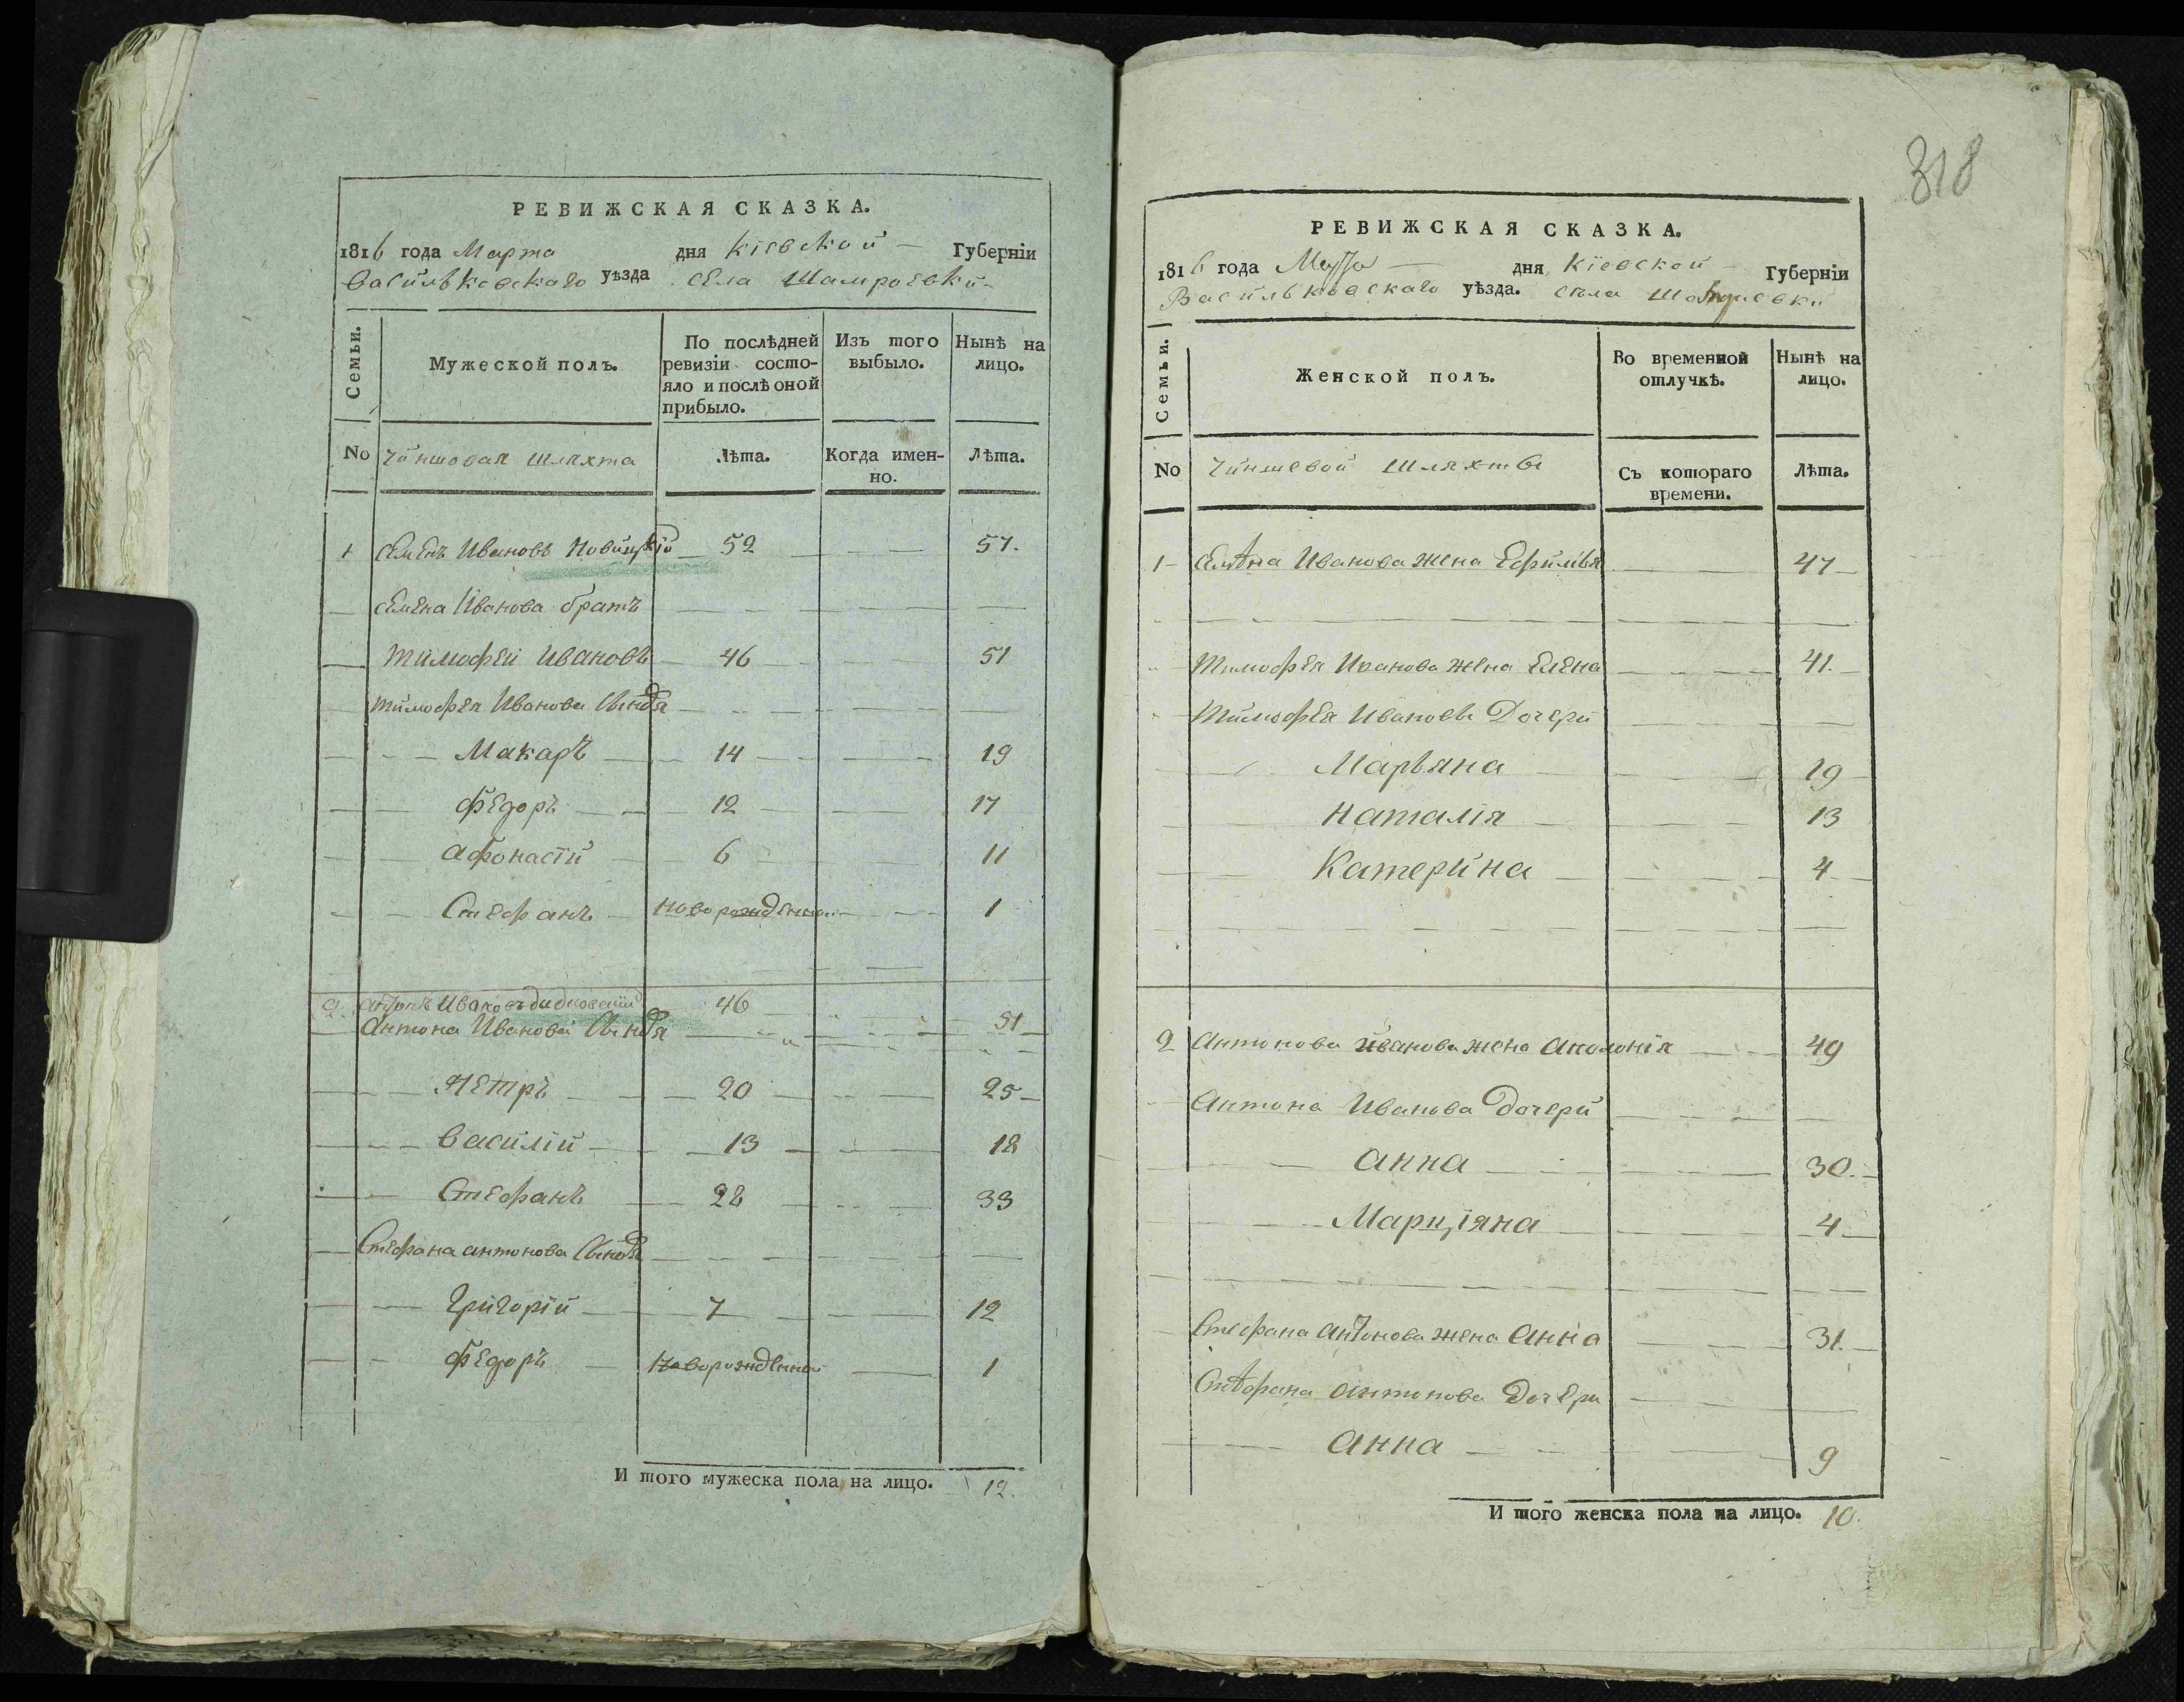 РЕВИЖСКАЯ СКАЗКА.
1816 года Марта дня Кіевской Губерніи
Васильковскаго уѣзда села Шамроевки
Семьи. Мужеской полъ. По послѣдней ревизіи состояло и послѣ оной прибыло. Изъ того выбыло. Нынѣ на лицо.
No Чиншовая шляхта Лѣта. Когда именно. Лѣта.
1 Семенъ Ивановъ Новицкій 52 57.
Семена Иванова братъ
Тимофей Ивановъ 46 51
Тимофея Иванова сыновья
Макаръ 14 19
Федоръ 12 17
Афонасій 6 11
Стефанъ новорожденной 1
2. Антонъ Ивановъ Дидковскій 46 51
Антона Иванова сыновья
Петръ 20 25
Василій 13 18
Стефанъ 28 33
Стефана Антонова сыновья
Григорій 7 12
Федоръ Новорожденной 1
И того мужеска пола на лицо. 12.
318
РЕВИЖСКАЯ СКАЗКА.
1816 года Марта дня Кіевской Губерніи
Васильковскаго уѣзда. села Шамриевки
Семьи. Женской полъ. Во временной отлучкѣ. Нынѣ на лицо.
No Чиншевой шляхты Съ котораго времени. Лѣта.
1 Семена Иванова жена Ефимья 47
Тимофея Иванова жена Елена 41.
Тимофея Иванова Дочери
Марьяна 19
Наталія 13
Катерина 4
2 Антонова Иванова жена Аполонія 49
Антона Иванова дочери
Анна 30.
Марціяна 4
Стефана Антонова жена Анна 31.
Стефана Антонова Дочери
Анна 9
И того женска пола на лицо. 10.